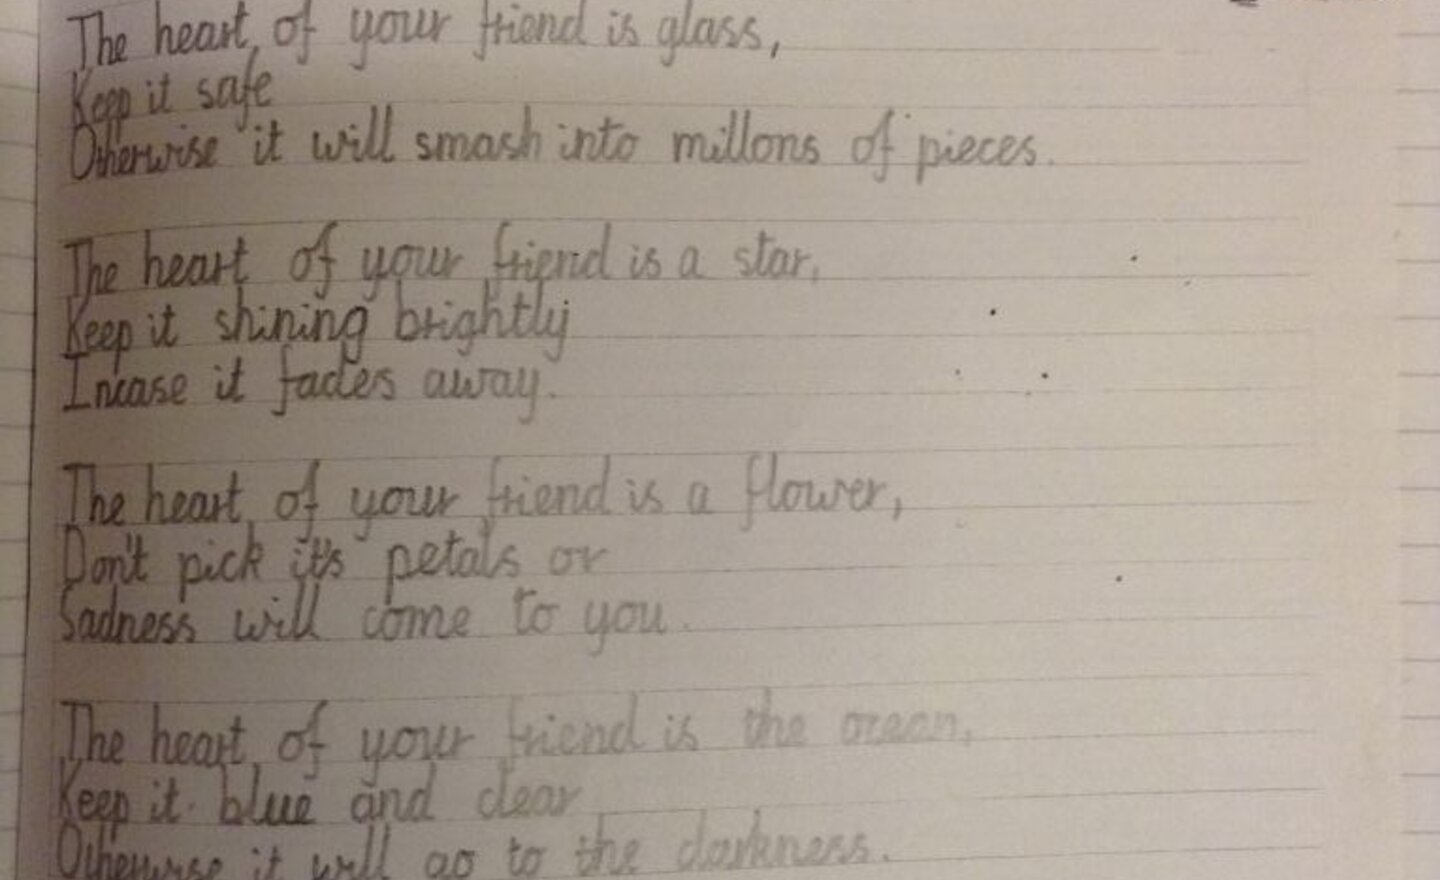 The heart of your friend is glass,
Keep it safe
Otherwise it will smash into millons of pieces.
The heart of your friend is a star,
Keep it shining brightly
Incase it fades away.
The heart of your friend is a flower,
Don't pick it's petals or
Sadness will come to you.
The heart of your friend is the ocean,
Keep it blue and clear
Otherwise it will go to the darkness.